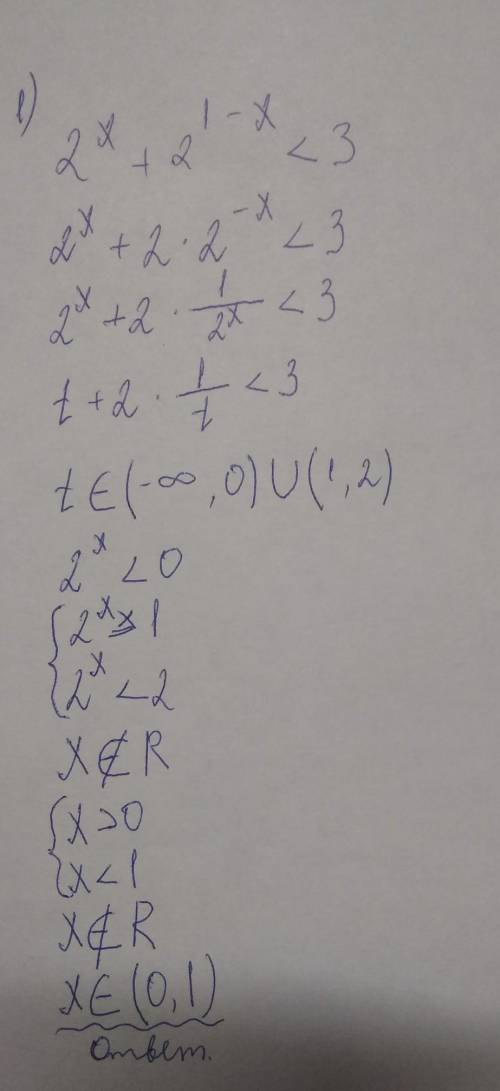 1)
2^x + 2^{1-x} < 3
2^x + 2 · 2^{-x} < 3
2^x + 2 · 1/2^x < 3
t + 2 · 1/t < 3
t ∈ (-∞, 0) ∪ (1, 2)
2^x < 0
{ 2^x > 1
2^x < 2
x ∉ R
{ x > 0
x < 1
x ∉ R
x ∈ (0, 1)
Ответ.